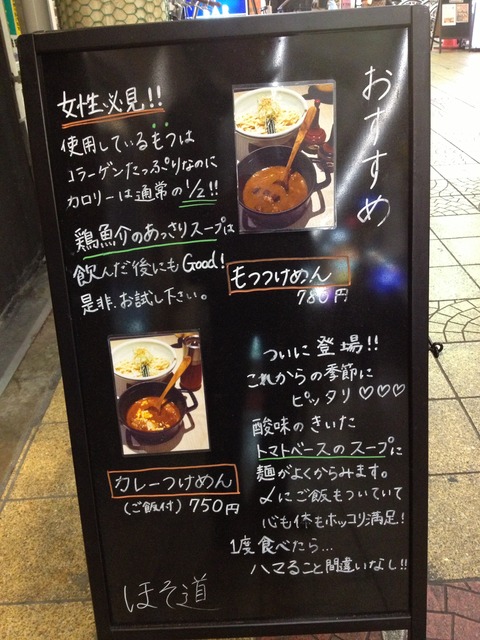 おすすめ
女性必見!!
使用しているもつは
コラーゲンたっぷりなのに
カロリーは通常の1/2!!
鶏魚介のあっさりスープは
飲んだ後にもGood!
是非お試し下さい。
もつつけめん
780円
ついに登場!!
これからの季節に
ピッタリ♡♡♡
酸味のきいた
トマトベースのスープに
麺がよくからみます。
〆にご飯もついていて
心も体もホッコリ満足!
1度食べたら...
ハマること間違いなし!!
カレーつけめん
(ご飯付)750円
ほそ道